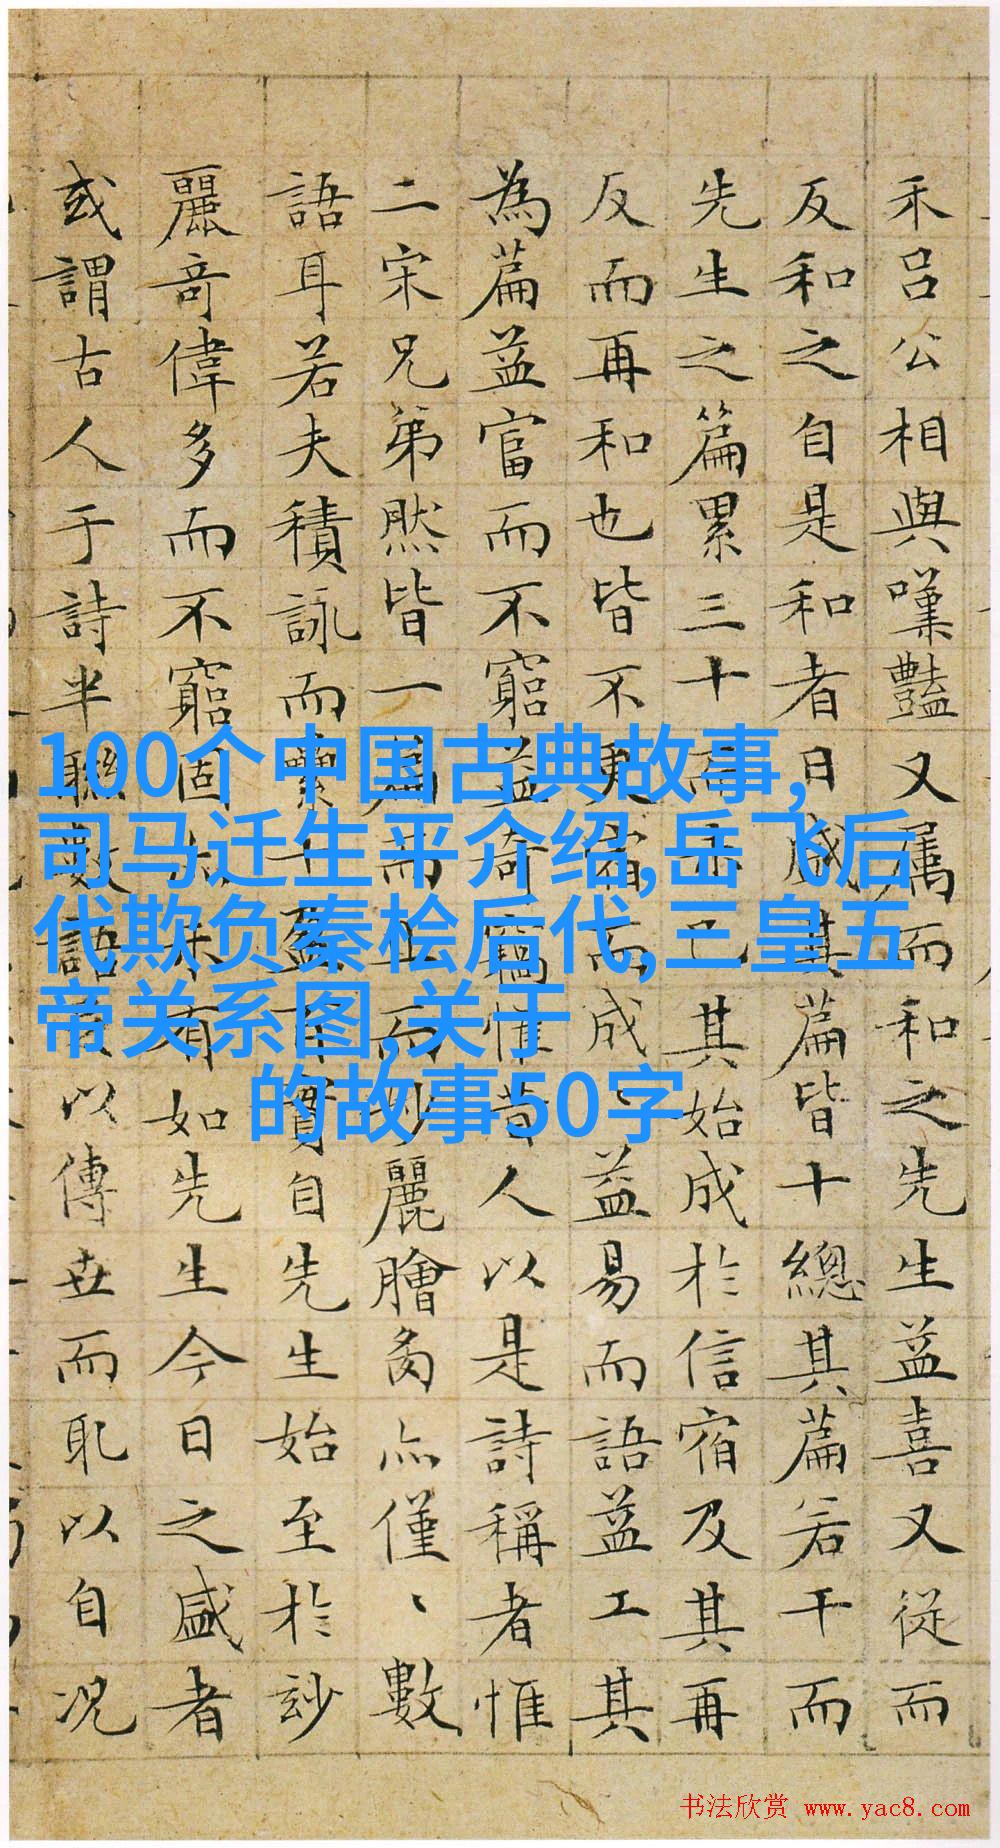 禾吕公相與嘆豔又属而和之先生益喜又從而
反和之自是和者日盛其篇皆十總其篇若干而
先生之篇累三十亦已其始成於信宿及其再
反而再和也皆不更宿而成、益易而語益工其
為篇益富而不窮益奇惟昔人以是詩稱者惟
二宋兄弟然皆一篇而止而妙麗膾炙亦僅、數
語耳若夫積詠而累十盈百實自先生始至於玅
麗奇偉多而不窮固未有如先生今日之盛者
或謂古人于詩半聯數語以傳世而耴以自况
100个中国古典故事,
司马迁生平介绍,岳飞后
代欺负秦桧后代,三皇五
帝关系图,关于
的故事50字
书法欣赏 www.yac8.com